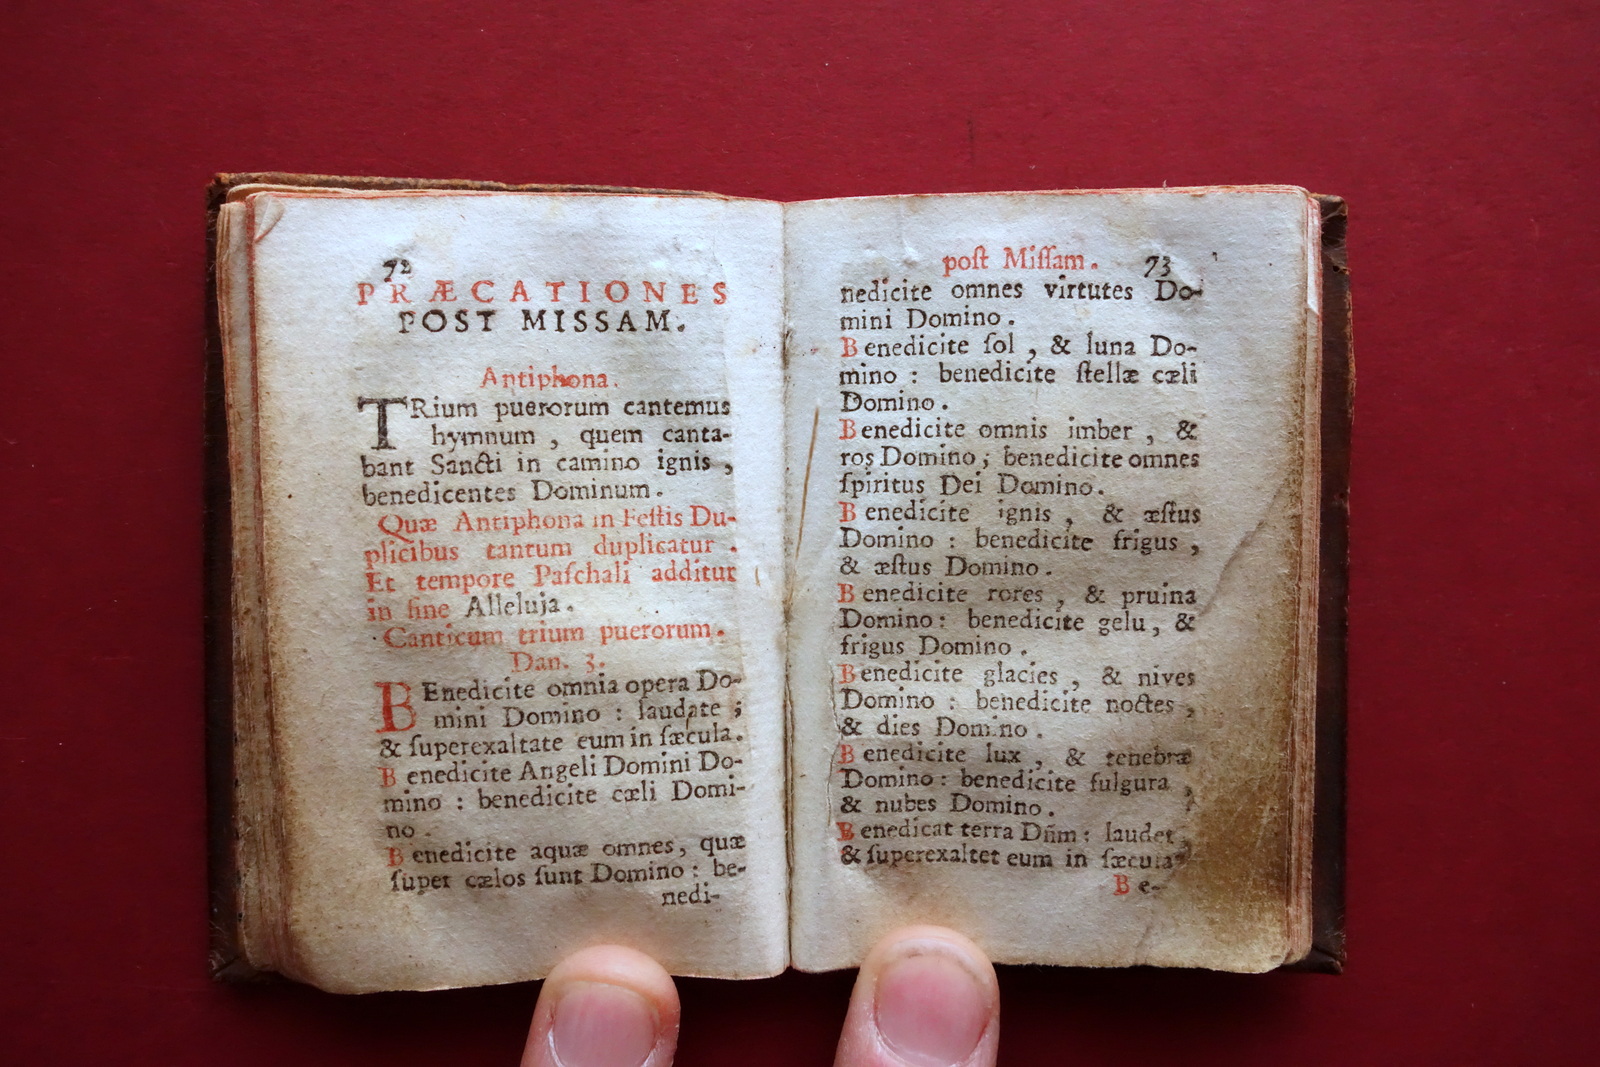 72
PRÆCATIONES
POST MISSAM.
Antiphona.
TRium puerorum cantemus
hymnum , quem canta-
bant Sancti in camino ignis ,
benedicentes Dominum.
Quæ Antiphona in Feſtis Du-
plicibus tantum duplicatur .
Et tempore Paſchali additur
in fine Alleluja.
Canticum trium puerorum.
Dan. 3.
BEnedicite omnia opera Do-
mini Domino : laudate ;
& ſuperexaltate eum in ſæcula.
Benedicite Angeli Domini Do-
mino : benedicite cæli Domi-
no .
Benedicite aquæ omnes, quæ
ſuper cælos ſunt Domino : be-
nedi-
poſt Miſſam. 73
nedicite omnes virtutes Do-
mini Domino .
Benedicite ſol , & luna Do-
mino : benedicite ſtellæ cæli
Domino .
Benedicite omnis imber , &
ros Domino ; benedicite omnes
ſpiritus Dei Domino.
Benedicite ignis , & æſtus
Domino : benedicite frigus ,
& æſtus Domino .
Benedicite rores , & pruina
Domino : benedicite gelu, &
frigus Domino .
Benedicite glacies , & nives
Domino : benedicite noctes ,
& dies Domino .
Benedicite lux , & tenebræ
Domino : benedicite fulgura ,
& nubes Domino .
Benedicat terra Dñm : laudet,
& ſuperexaltet eum in ſæcula
Be-